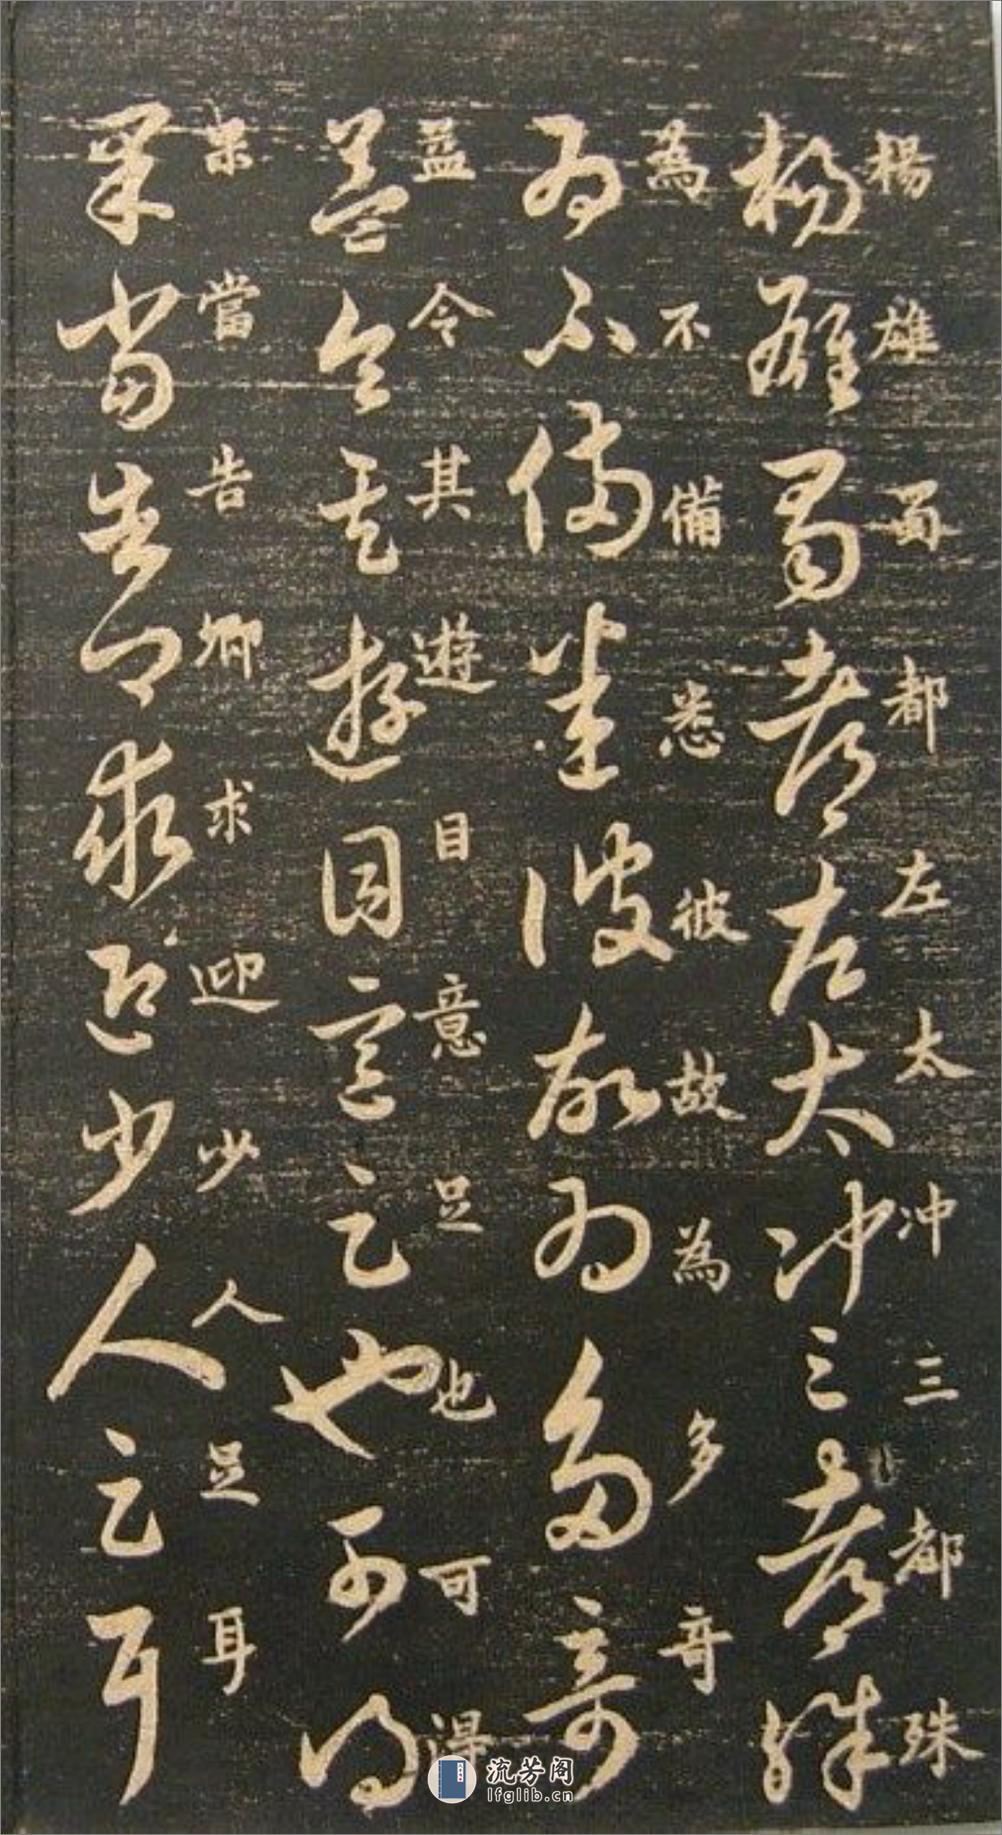 楊雄蜀都左太冲三都殊
楊雄蜀都左太冲三都殊
為不備悉彼故為多奇
為不備悉彼故為多奇
益令其遊目意足也可得
益令其遊目意足也可得
果當告卿求迎少人足耳
果當告卿求迎少人足耳
流芳阁
lfglib.cn